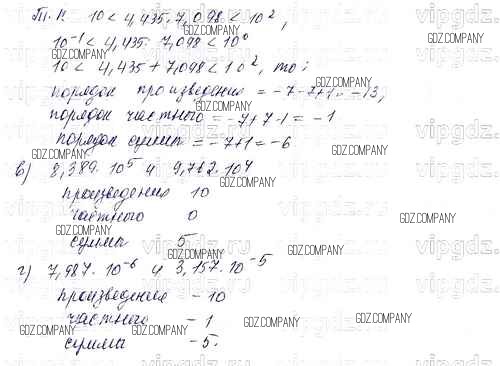 Т.к. 10 < 4,435 · 7,098 < 10²,
10⁻¹ < 4,435 : 7,098 < 10⁰
10 < 4,435 + 7,098 < 10², то:
порядок произведения = -7-7+1 = -13,
порядок частного = -7+7-1 = -1
порядок суммы = -7+1 = -6
в) 8,389 · 10⁵ и 9,762 · 10⁴
произведения 10
частного 0
суммы 5
г) 7,987 · 10⁻⁶ и 3,157 · 10⁻⁵
произведения -10
частного -1
суммы -5